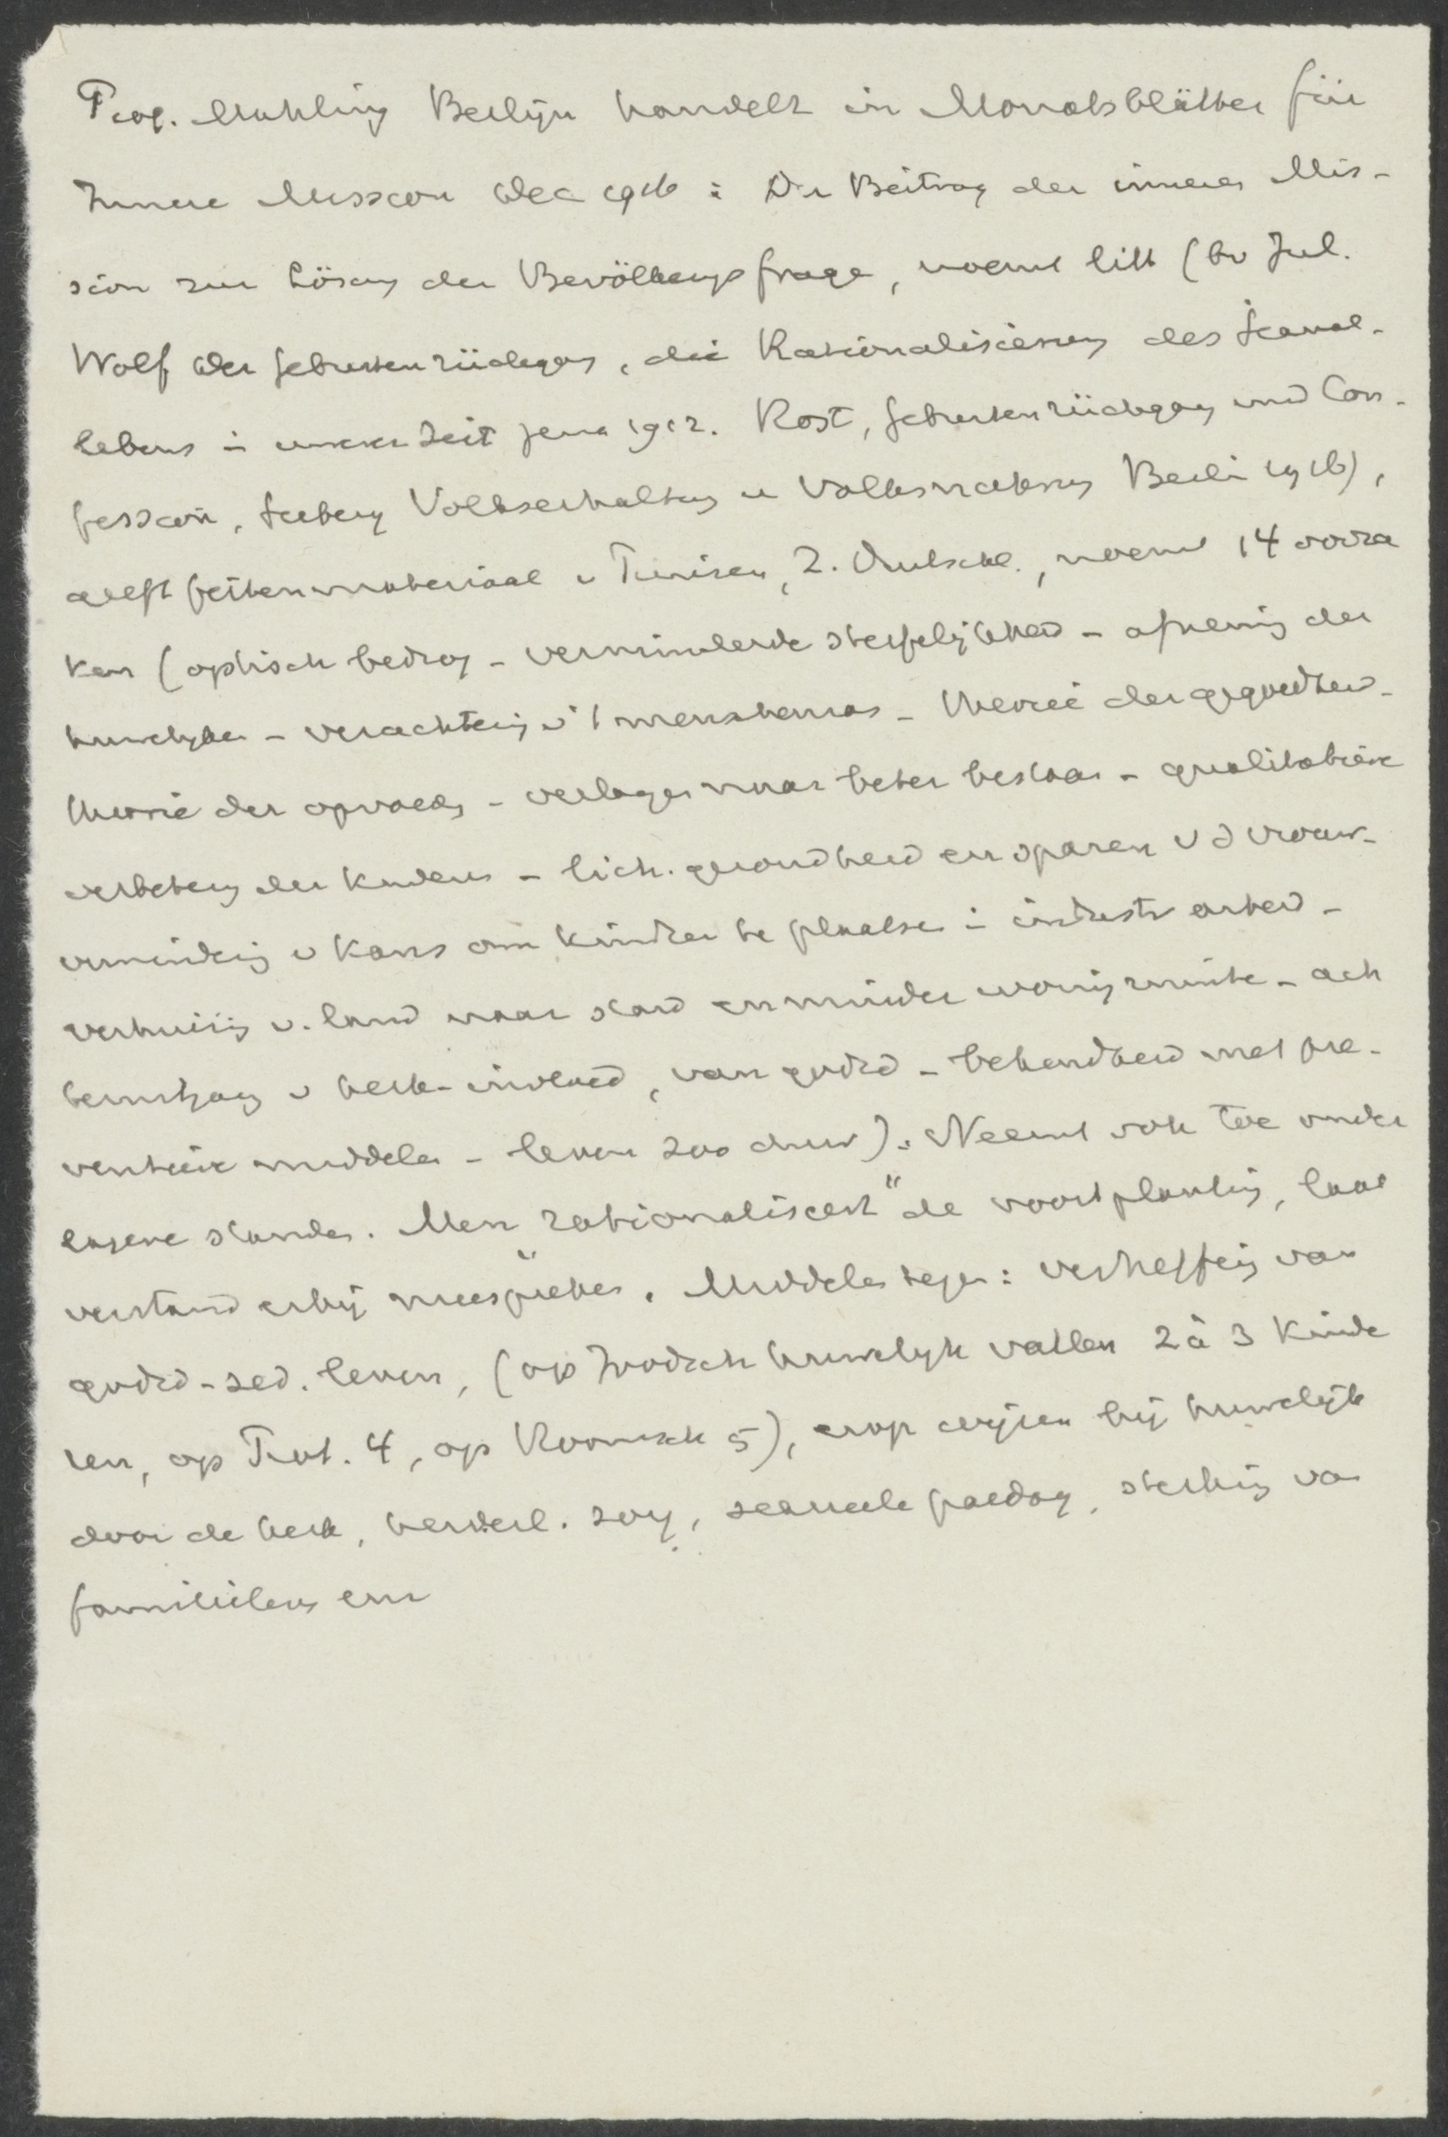 Prof. Mahling Berlijn handelt in Monatsblätter für
Innere Mission Dec 1916: Der Beitrag der inneren Mis-
sion zur Lösung der Bevölkerungsfrage, noemt litt (bv Jul.
Wolf Der Geburtenrückgang, die Rationalisierung des Sexual-
lebens in unserer Zeit Jena 1912. Rost, Geburtenrückgang und Con-
fession, Seeberg Volkserhaltung u Volksmehrung Berlin 1916),
geeft feitenmateriaal v Pruisen, Z. Duitschl., noemt 14 oorza
ken (optisch bedrog - verminderde sterfelijkheid - afneming der
huwelijken - verachtering v 't menschenras - theorie der gegoedheid -
theorie der opvoeding - verlangen naar beter bestaan - qualitatieve
verbetering der kinderen - lich. gezondheid en sparen v d vrouw -
vermindering v kans om kinderen te plaatsen in industr arbeid -
verhuizing v. land naar stad en minder woningruimte - ach
teruitgang v kerk-invloed, van godsd - bekendheid met pre-
ventieve middelen - leven zoo duur). Neemt ook toe onder
lagere standen. Men "rationaliseert" de voortplanting, laat
verstand erbij meespreken. Middelen tegen: verheffing van
godsd-zed. leven, (op Joodsch huwelijk vallen 2 à 3 kinde
ren, op Prot. 4, op Roomsch 5), erop wijzen bij huwelijk
door de kerk, herderl. zorg, sexueele paedag, sterking van
familieleven en